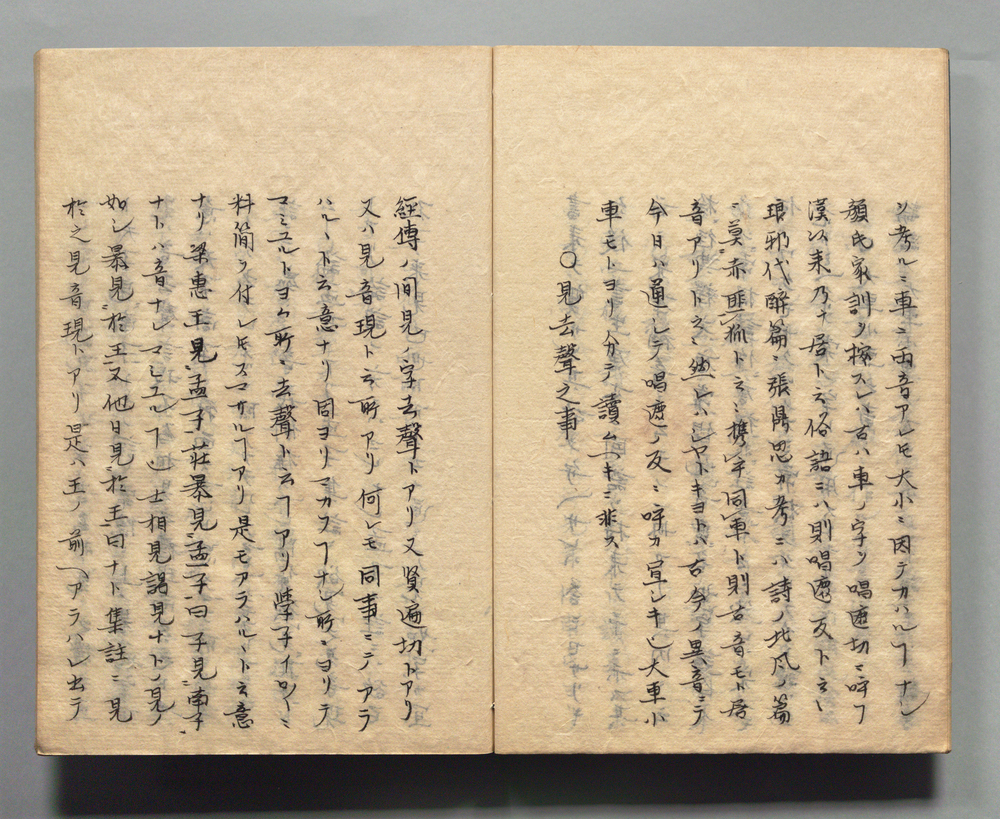 ヲ考ルニ車ニ両音アレㇳモ大小ニ因テカハルヿナシ
顔氏家訓ヲ按スレハ古ハ車ノ字ヲ唱遮切ニ呼フ
漢以来乃ナ居ト云俗語ニハ則唱遮反ト云シ
琅邪代醉篇ニ張鼎思カ考ニハ詩ノ北風ノ篇
ニ莫赤匪狐ト云ニ携手同車ト則古音モト居
音アリト云ニ然レハシヤトキヨトハ古今ノ異音ニテ
今日ハ通シテ唱遮ノ反ニ呼カ宣シキ也大車小
車モトヨリ分テ讀ムヘキニ非ス
〇見去聲之事
經傳ノ間見ノ字去聲トアリ又賢遍切トアリ
又ハ見音現ト云所アリ何レモ同事ニテアラ
ハルヽト云意ナリ固ヨリマカフヿナシ所ニヨリテ
マミユルトヨク所ニ去聲ト云ヿアリ學子イロ〱ニ
料簡ヲ付レㇳモスマサルヿアリ是モアラハルヽト云意
ナリ梁惠王見孟子莊暴見孟子曰子見南子
ナトハ音ナシマミユルヿ也士相見謁見ナトノ見ノ
如シ暴見於王又他日見於王曰ナト集註ニ見
於之見音現トアリ是ハ王ノ前ヘアラハレ出テ